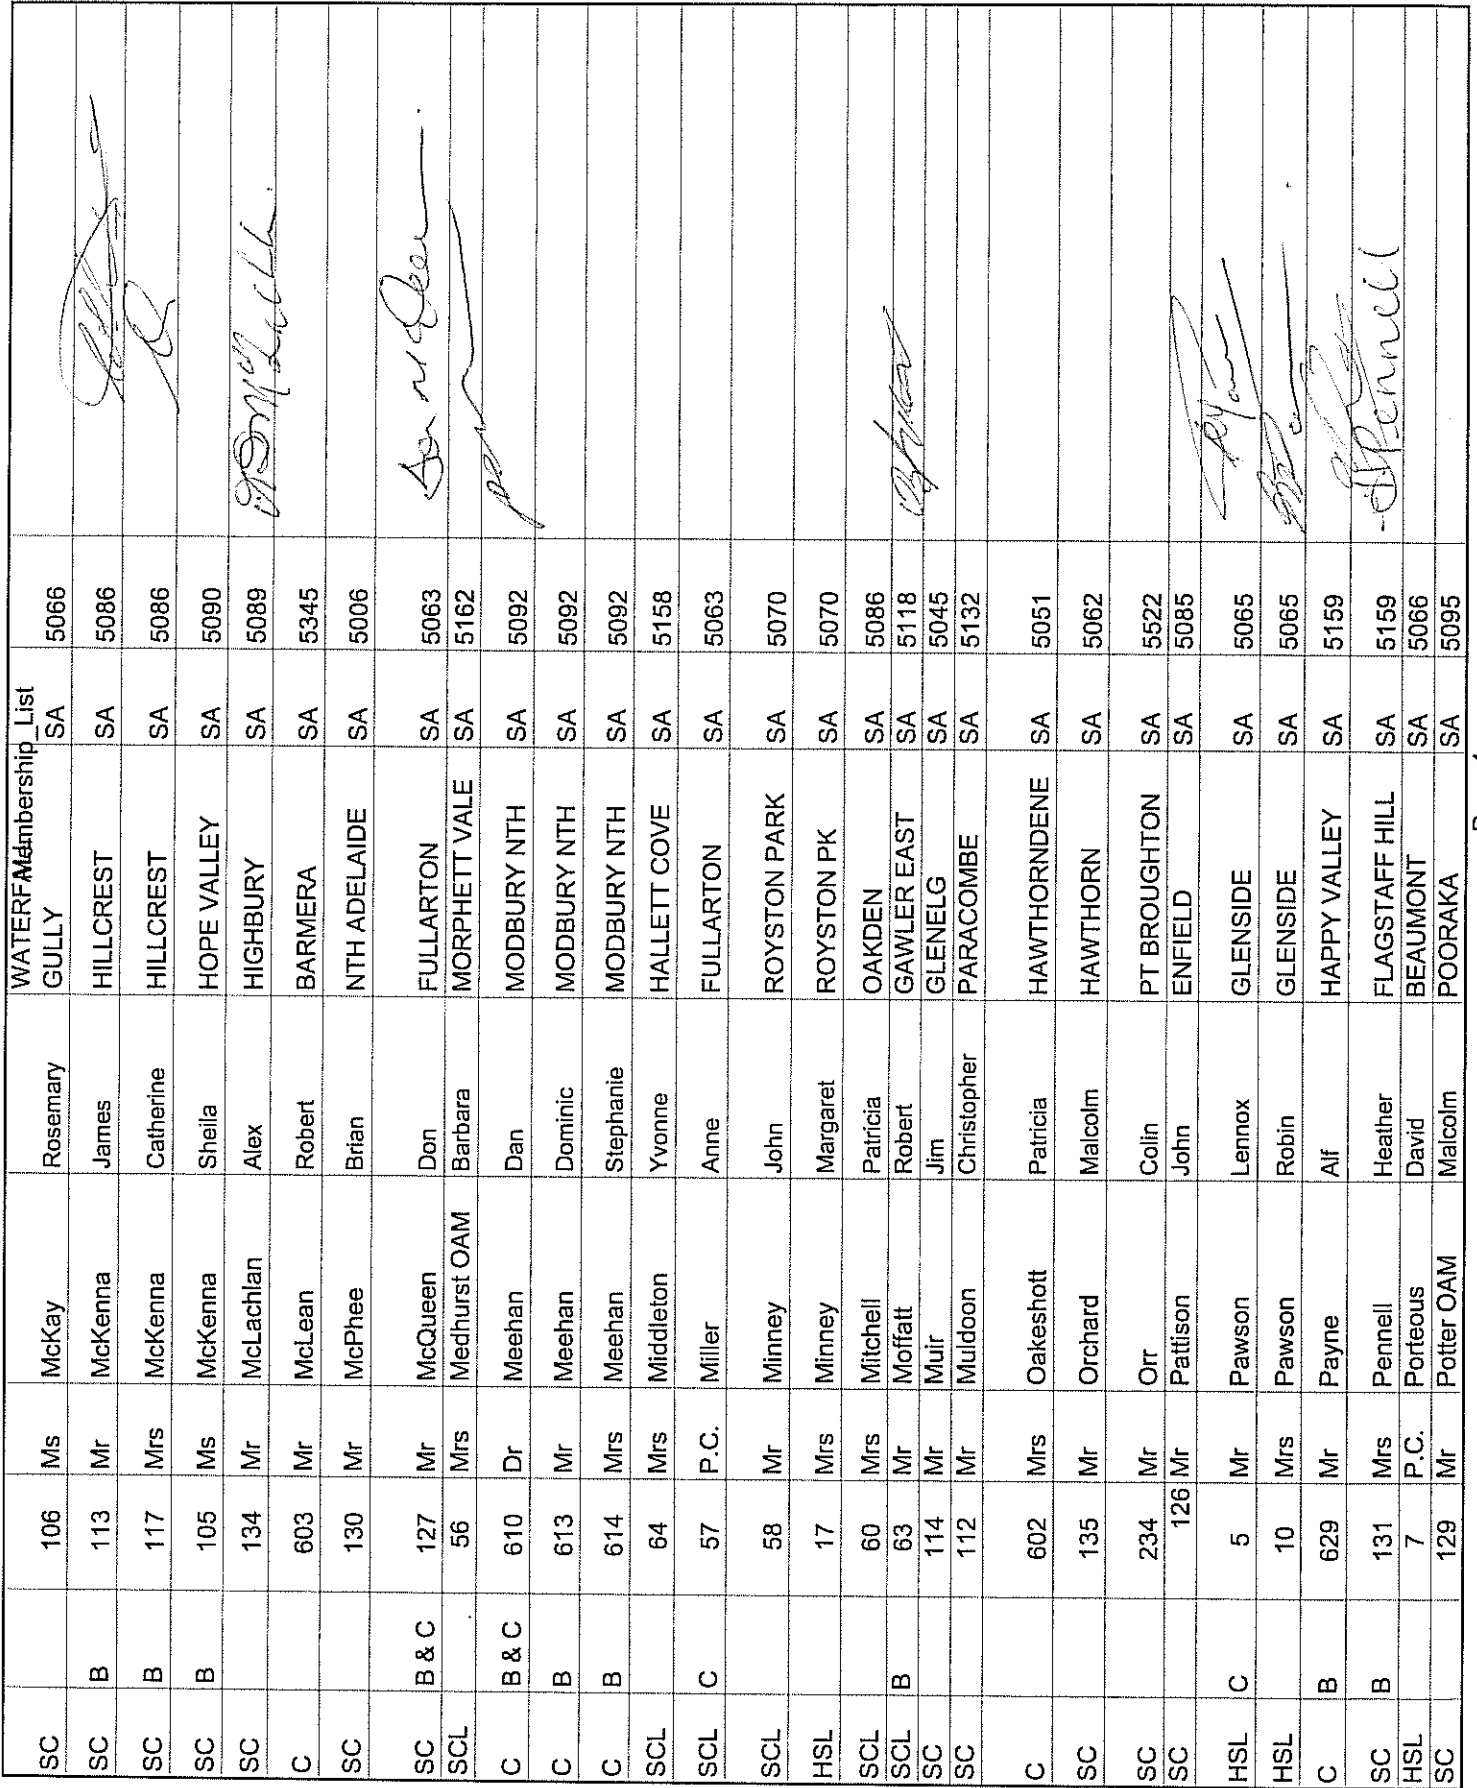 Membership_List
SC 106 Ms McKay Rosemary WATERFALL GULLY SA 5066
SC B 113 Mr McKenna James HILLCREST SA 5086
SC B 117 Mrs McKenna Catherine HILLCREST SA 5086
SC B 105 Ms McKenna Sheila HOPE VALLEY SA 5090
SC 134 Mr McLachlan Alex HIGHBURY SA 5089
C 603 Mr McLean Robert BARMERA SA 5345
SC 130 Mr McPhee Brian NTH ADELAIDE SA 5006
SC B & C 127 Mr McQueen Don FULLARTON SA 5063
SCL 56 Mrs Medhurst OAM Barbara MORPHETT VALE SA 5162
C B & C 610 Dr Meehan Dan MODBURY NTH SA 5092
C B 613 Mr Meehan Dominic MODBURY NTH SA 5092
C B 614 Mrs Meehan Stephanie MODBURY NTH SA 5092
SCL 64 Mrs Middleton Yvonne HALLETT COVE SA 5158
SCL C 57 P.C. Miller Anne FULLARTON SA 5063
SCL 58 Mr Minney John ROYSTON PARK SA 5070
HSL 17 Mrs Minney Margaret ROYSTON PK SA 5070
SCL 60 Mrs Mitchell Patricia OAKDEN SA 5086
SCL B 63 Mr Moffatt Robert GAWLER EAST SA 5118
SC 114 Mr Muir Jim GLENELG SA 5045
SC 112 Mr Muldoon Christopher PARACOMBE SA 5132
C 602 Mrs Oakeshott Patricia HAWTHORNDENE SA 5051
SC 135 Mr Orchard Malcolm HAWTHORN SA 5062
SC 234 Mr Orr Colin PT BROUGHTON SA 5522
SC 126 Mr Pattison John ENFIELD SA 5085
HSL C 5 Mr Pawson Lennox GLENSIDE SA 5065
HSL 10 Mrs Pawson Robin GLENSIDE SA 5065
C B 629 Mr Payne Alf HAPPY VALLEY SA 5159
SC B 131 Mrs Pennell Heather FLAGSTAFF HILL SA 5159 Pennell
HSL 7 P.C. Porteous David BEAUMONT SA 5066
SC 129 Mr Potter OAM Malcolm POORAKA SA 5095